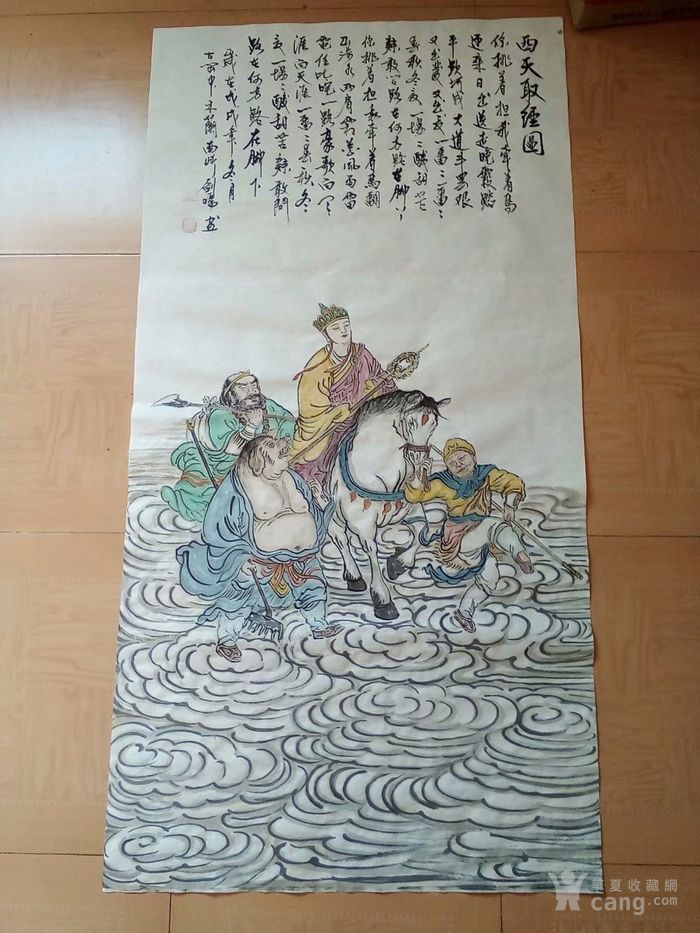 西天取經圖
你挑着担我牵着馬
迎来日出送走晚霞踏
平坎坷成大道斗罢艰
又出發又出发一番二
春秋冬夏一場二酸甜苦
辣敢问路在何方路在脚下
你挑着担我牵着馬翻
山涉水两肩霜花风雨雷
電任叱咤一路豪歌向天
涯向天涯一番二春秋冬
夏一場二酸甜苦辣敢問
路在何方路在脚下
歲在戊戌年冬月
木蘭画师剑鳴画
華夏收藏網
cang.com